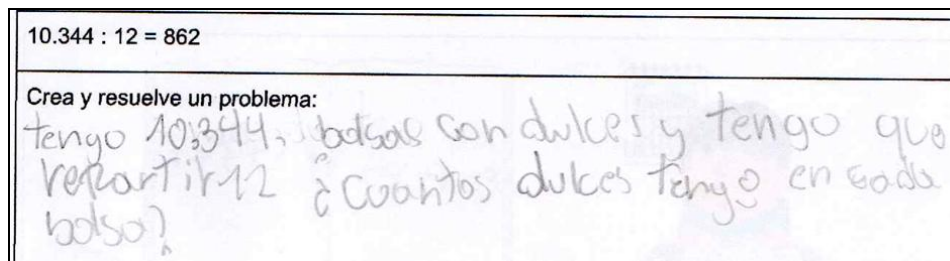 10.344 : 12 = 862
Crea y resuelve un problema:
tengo 10.344. bolsas con dulces y tengo que
repartir 12 ¿Cuantos dulces tengo en cada
bolsa?